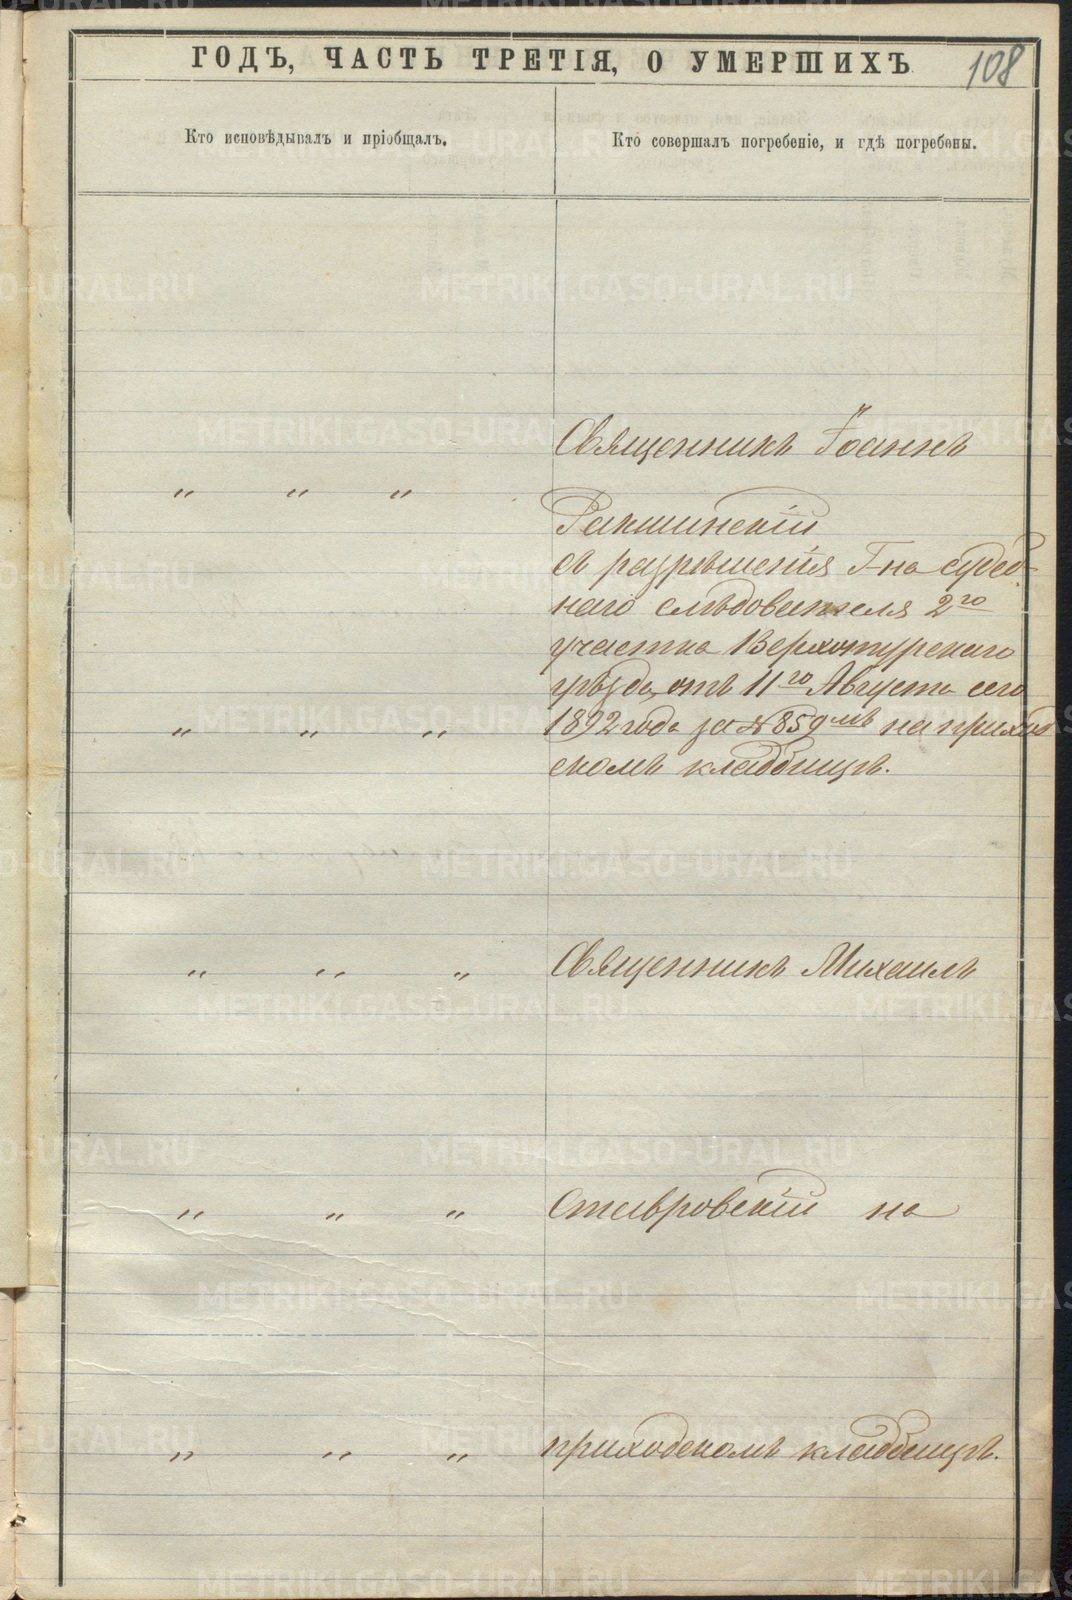 ГОДЪ, ЧАСТЬ ТРЕТІЯ, О УМЕРШИХЪ
108
Кто исповѣдывалъ и пріобщалъ.
Кто совершалъ погребеніе, и гдѣ погребены.
Священникъ Іоаннъ
„ „ „
съ разрѣшенія Г-на судеб-
наго слѣдователя 2го
участка Верхотурскаго
уѣзда, отъ 11го Августа сего
„ „ „ 1892 года за № 859мъ на приход
скомъ кладбищѣ.
„ „ „ Священникъ Михаилъ
„ „ „ Ставровскій на
„ „ „ приходскомъ кладбищѣ.
METRIKI.GASO-URAL.RU